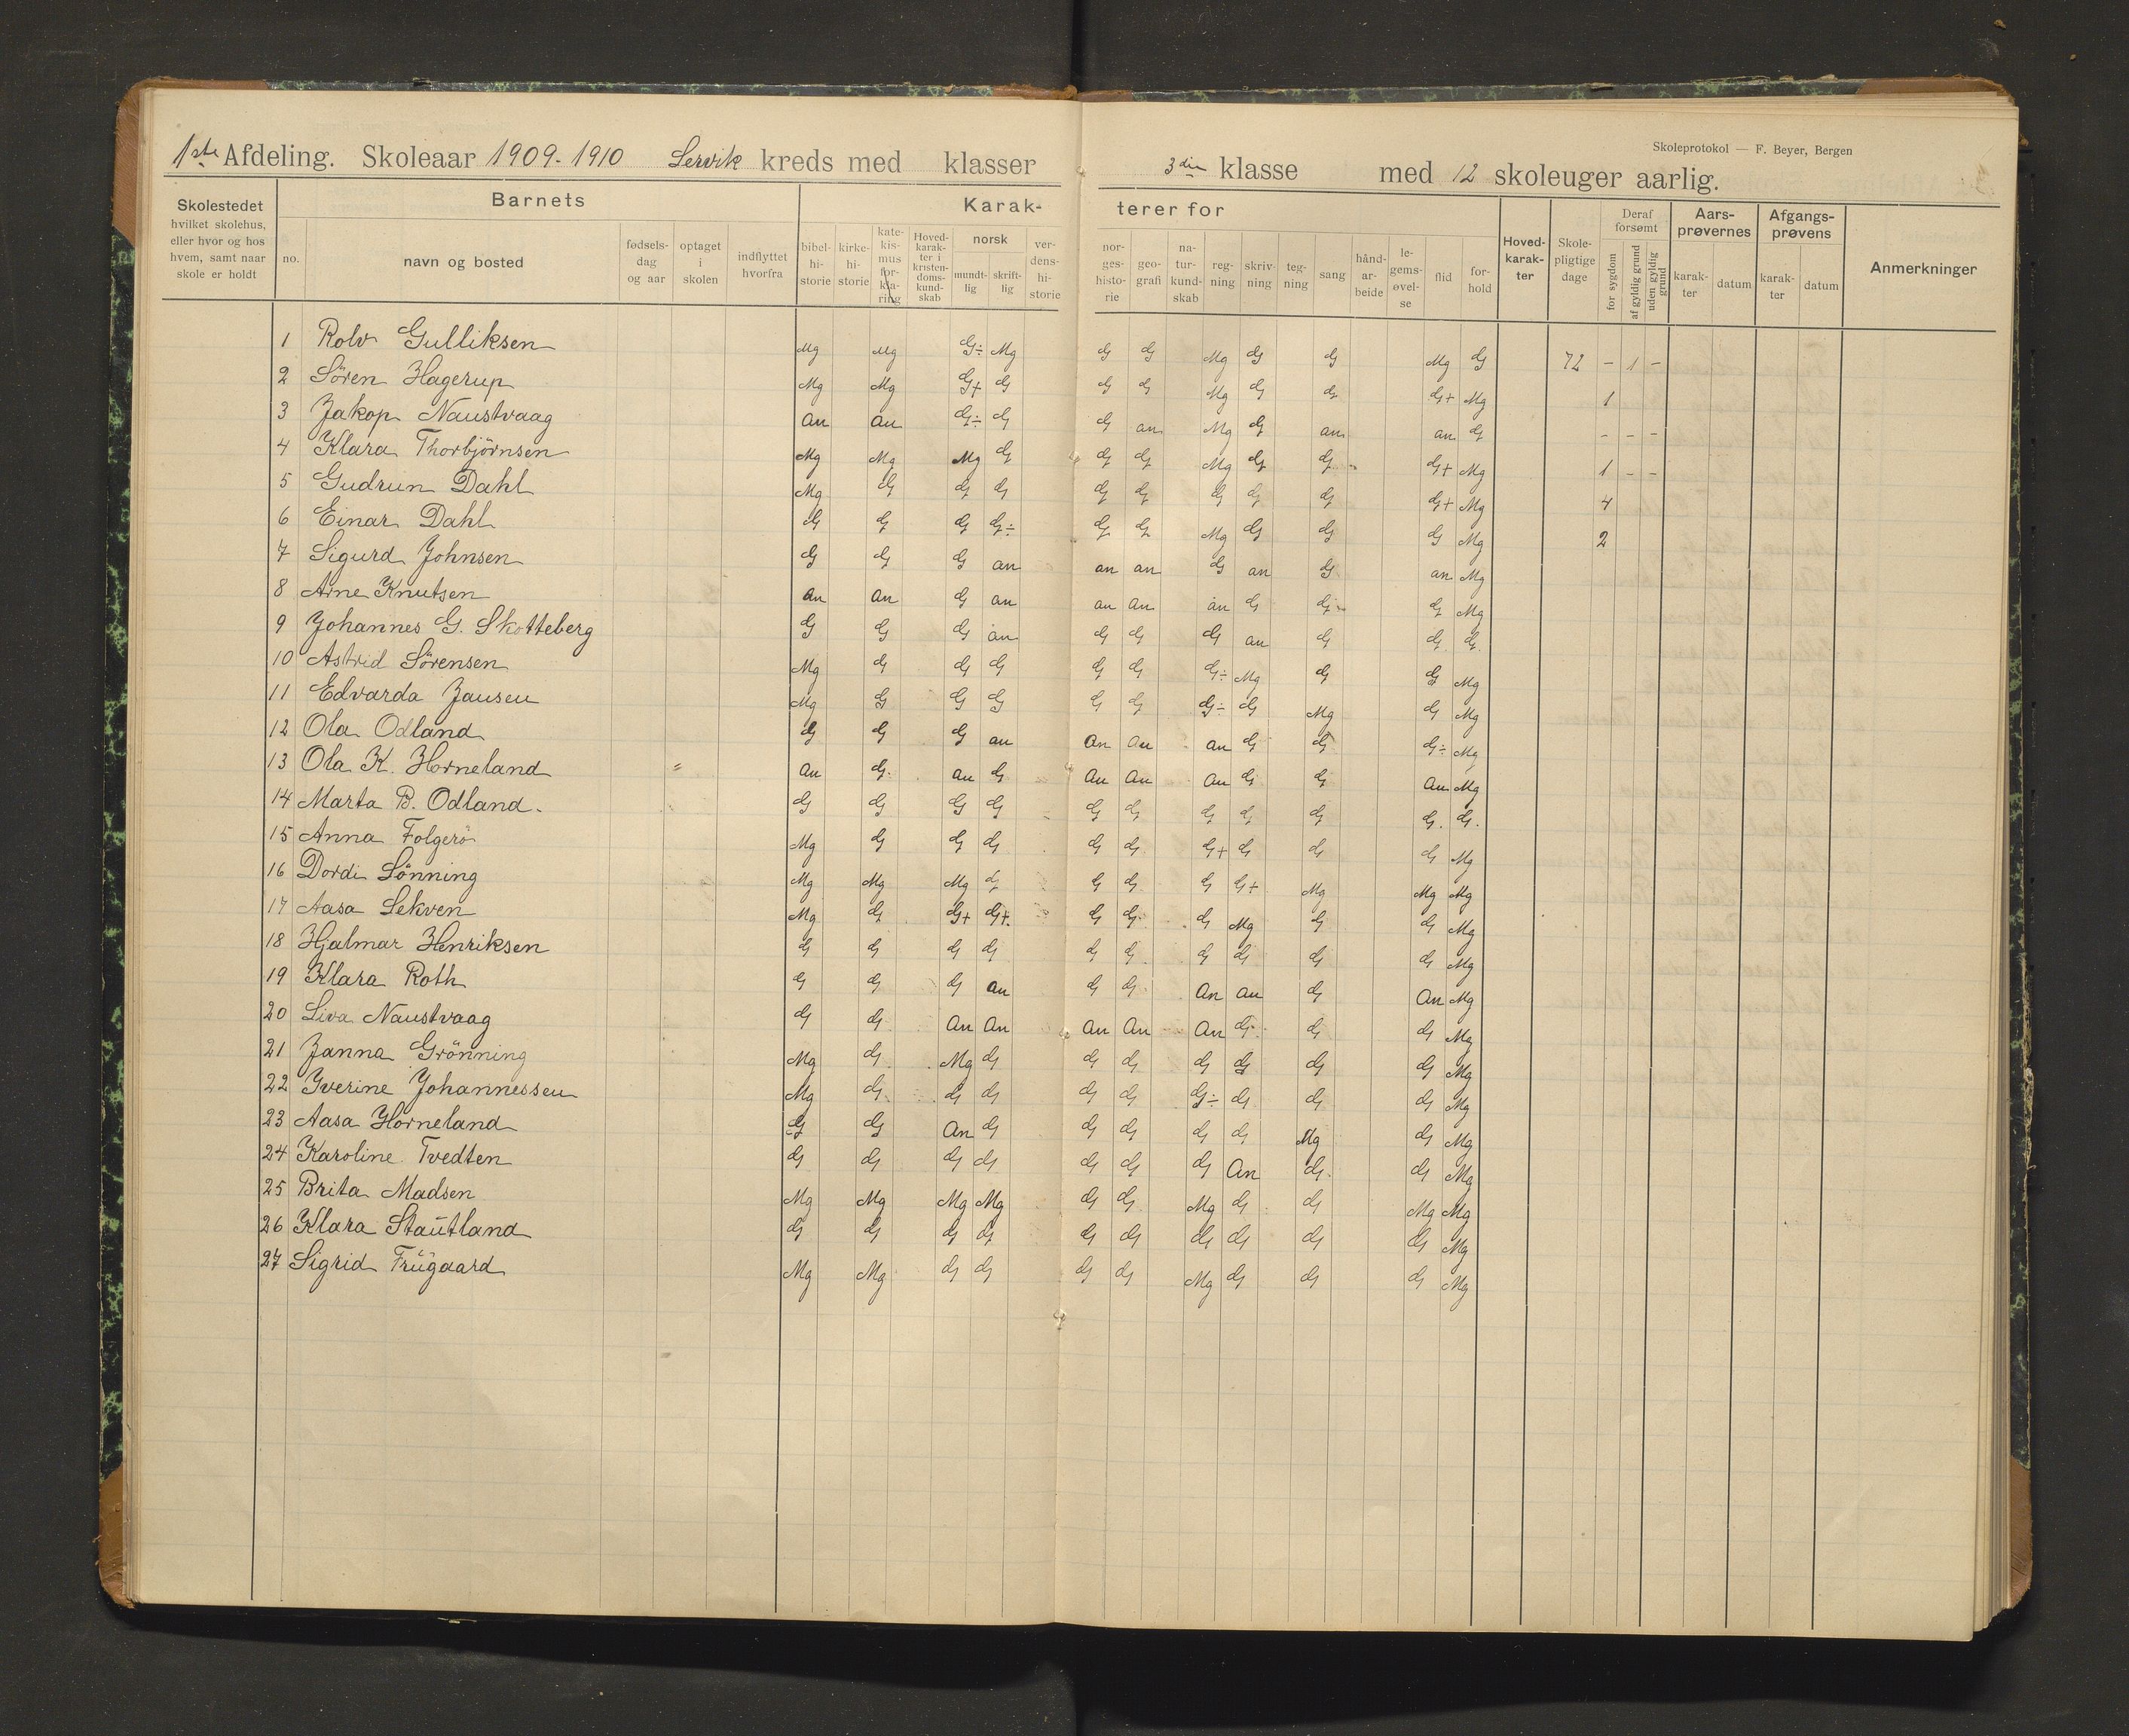 1ste Afdeling. Skoleaar 1909-1910 Lervik kreds med klasser
Skoleprotokol — F. Beyer, Bergen
3die klasse med 12 skoleuger aarlig.
Skolestedet hvilket skolehus, eller hvor og hos hvem, samt naar skole er holdt
Barnets
no. navn og bosted fødselsdag og aar optaget i skolen indflyttet hvorfra
Karakterer for
bibelhistorie kirkehistorie katekismus forklaring Hovedkarakter i kristendomskundskab norsk mundtlig skriftlig verdenshistorie
norgeshistorie geografi naturkundskab regning skrivning tegning sang håndarbeide legemsøvelse flid forhold
Hovedkarakter Skolepligtige dage Deraf forsømt for sygdom af gyldig grund uden gyldig grund
Aarsprøvernes karakter datum Afgangsprøvens karakter datum Anmerkninger
1 Rolv Gulliksen Mg Mg G÷ Mg G G Mg G G Mg G 72 – 1 –
2 Sören Hagerup Mg Mg G+ G G G Mg G G G+ Mg 1
3 Jakop Naustvaag an an G÷ G G an Mg G an an G – – –
4 Klara Thorbjörnsen Mg Mg Mg G G G Mg G G G+ Mg 1 – –
5 Gudrun Dahl Mg G G G G G G G G G+ Mg 4
6 Einar Dahl G G G G÷ G G Mg G G G Mg 2
7 Sigurd Johnsen G G G an an an G an G an Mg
8 Arne Knutsen an an G an an an an G G G Mg
9 Johannes G. Skotteberg G G G an G G G an G G G
10 Astrid Sörensen Mg G G G G G G÷ Mg G G Mg
11 Edvarda Jansen Mg G G G G G G÷ G Mg G Mg
12 Ola Odland G G G an an an an G G G÷ Mg
13 Ola K. Horneland an G an G an an an G G an Mg
14 Marta B. Odland. G G G G G G G G G G. G.
15 Anna Folgerö Mg G G G G G G+ G G G Mg
16 Dordi Sönning Mg Mg Mg G G G G G+ Mg Mg Mg
17 Aasa Lekven Mg G G+ G+ G G G Mg G G Mg
18 Hjalmar Henriksen G G G G G G G G G G Mg
19 Klara Roth G G G an G G an an G an Mg
20 Liva Naustvaag G G an an an an an G G G Mg
21 Janna Grönning Mg G Mg G G G G G G G Mg
22 Yverine Johannessen Mg G G G G G G÷ G G G Mg
23 Aasa Horneland G G an G G G G G Mg G Mg
24 Karoline Tvedten G G G G G G G an G G Mg
25 Brita Madsen Mg Mg Mg Mg G G Mg G G Mg Mg
26 Klara Stautland G G G G G G G G G G Mg
27 Sigrid Frügaard Mg Mg G G G G Mg G G G Mg